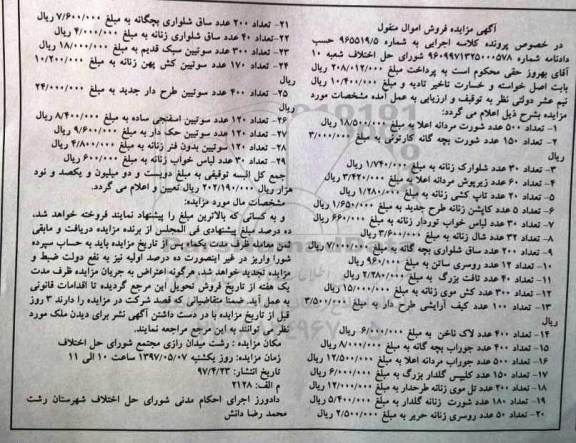 آگهی مزایده فروش اموال منقول
در خصوص پرونده کلاسه اجرایی به شماره ۹۶۵۵۱۹/۵ حسب
دادنامه شماره ۹۶۰۹۹۷۱۳۲۵۰۰۰۵۷۸ شورای حل اختلاف شعبه ۱۰
آقای بهروز حقی محکوم است به پرداخت مبلغ ۲۰۸/۰۱۲/۰۰۰ ریال
بابت اصل خواسته و خسارت تاخیر تادیه و مبلغ ۱۰/۴۰۰/۰۰۰ ریال
نیم عشر دولتی نظر به توقیف و ارزیابی به عمل آمده مشخصات مورد
مزایده بشرح ذیل اعلام می گردد:
۱- تعداد ۵۰۰ عدد شورت مردانه اعلا به مبلغ ۱۸/۵۰۰/۰۰۰ ریال
۲- تعداد ۱۵۰ عدد شورت بچه گانه کارتونی به مبلغ ۳/۰۰۰/۰۰۰
ریال
۳- تعداد ۳۰ عدد شلوارک زنانه به مبلغ ۱/۷۴۰/۰۰۰ ریال
۴- تعداد ۶۰ عدد زیرپوش مردانه اعلا به مبلغ ۳/۴۲۰/۰۰۰ ریال
۵- تعداد ۲۰ عدد تاپ کشی زنانه به مبلغ ۱/۲۸۰/۰۰۰ ریال
۶- تعداد ۵ عدد کاپشن زنانه طرح جدید به مبلغ ۱/۶۵۰/۰۰۰ ریال
۷- تعداد ۳۰ عدد لباس خواب توردار زنانه به مبلغ ۶۶۰/۰۰۰ ریال
۸- تعداد ۳۲ عدد شال زنانه به مبلغ ۳/۶۰۰/۰۰۰ ریال
۹- تعداد ۲۰۰ عدد ساق شلواری بچه گانه به مبلغ ۷/۰۰۰/۰۰۰ ریال
۱۰- تعداد ۱۲ عدد روسری ساتن به مبلغ ۹۶۰/۰۰۰ ریال
۱۱- تعداد ۴۰ عدد تافت بزرگ به مبلغ ۲/۲۸۰/۰۰۰ ریال
۱۲- تعداد ۳۰۰ عدد کش موی زنانه به مبلغ ۱۵/۰۰۰/۰۰۰ ریال
۱۳- تعداد ۱۰۰ عدد کیف آرایشی طرح دار به مبلغ ۳/۵۰۰/۰۰۰
ریال
۱۴- تعداد ۴۰۰ عدد لاک ناخن به مبلغ ۶/۰۰۰/۰۰۰ ریال
۱۵- تعداد ۴۰۰ عدد جوراب بچه گانه به مبلغ ۸/۰۰۰/۰۰۰ ریال
۱۶- تعداد ۵۰۰ عدد جوراب مردانه اعلا به مبلغ ۱۲/۵۰۰/۰۰۰ ریال
۱۷- تعداد ۱۵۰ عدد کلیپس گلدار بزرگ به مبلغ ۶/۰۰۰/۰۰۰ ریال
۱۸- تعداد ۲۰۰ عدد تل موی زنانه طرحدار به مبلغ ۱۲/۰۰۰/۰۰۰ ریال
۱۹- تعداد ۱۸۰ عدد شورت زنانه گلدار به مبلغ ۵/۴۰۰/۰۰۰ ریال
۲۰- تعداد ۵۰ عدد روسری زنانه حریر به مبلغ ۲/۵۰۰/۰۰۰ ریال
۲۱- تعداد ۲۰۰ عدد ساق شلواری بچگانه به مبلغ ۷/۶۰۰/۰۰۰ ریال
۲۲- تعداد ۴۰ عدد ساق شلواری زنانه به مبلغ ۴/۰۰۰/۰۰۰ ریال
۲۳- تعداد ۳۰۰ عدد سوتین سبک قدیم به مبلغ ۱۸/۰۰۰/۰۰۰ ریال
۲۴- تعداد ۱۷۰ عدد سوتین کش پهن زنانه به مبلغ ۱۰/۲۰۰/۰۰۰
ریال
۲۵- تعداد ۴۰۰ عدد سوتین طرح دار جدید به مبلغ ۲۴/۰۰۰/۰۰۰
ریال
۲۶- تعداد ۱۲۰ عدد سوتین اسفنجی ساده به مبلغ ۸/۴۰۰/۰۰۰ ریال
۲۷- تعداد ۱۲۰ عدد سوتین حک دار به مبلغ ۹/۶۰۰/۰۰۰ ریال
۲۸- تعداد ۱۲۰ سوتین بدون فنر زنانه به مبلغ ۴/۸۰۰/۰۰۰ ریال
۲۹- تعداد ۳۰ عدد لباس خواب زنانه به مبلغ ۶۰۰/۰۰۰ ریال
جمع کل البسه توقیفی به مبلغ دویست و دو میلیون و یکصد و نود
هزار ریال ۲۰۲/۱۹۰/۰۰۰ ریال تعیین و اعلام می گردد.
مشخصات مال مورد مزایده:
و به کسانی که بالاترین مبلغ را پیشنهاد نمایند فروخته خواهد شد،
ده درصد مبلغ پیشنهادی فی المجلس از برنده مزایده دریافت و مابقی
ثمن معامله ظرف مدت یکماه از تاریخ مزایده باید به حساب سپرده
شورا واریز در غیر اینصورت ده درصد اولیه نیز به نفع دولت ضبط و
مزایده تجدید خواهد شد، هرگونه اعتراض به جریان مزایده ظرف مدت
یک هفته از تاریخ فروش تحویل این مرجع گردیده تا اقدامات قانونی
به عمل آید. ضمنا متقاضیانی که قصد شرکت در مزایده را دارند ۳ روز
قبل از تاریخ مزایده با در دست داشتن آگهی نشر برای دیدن ملک مورد
نظر می توانند به این مرجع مراجعه نمایند.
مکان مزایده : رشت میدان رازی مجتمع شورای حل اختلاف
زمان مزایده: روز یکشنبه ۱۳۹۷/۰۵/۰۷ ساعت ۱۰ الی ۱۱
تاریخ انتشار: ۹۷/۴/۲۳
م الف: ۲۱۲۸
دادورز اجرای احکام مدنی شورای حل اختلاف شهرستان رشت
محمد رضا دانش